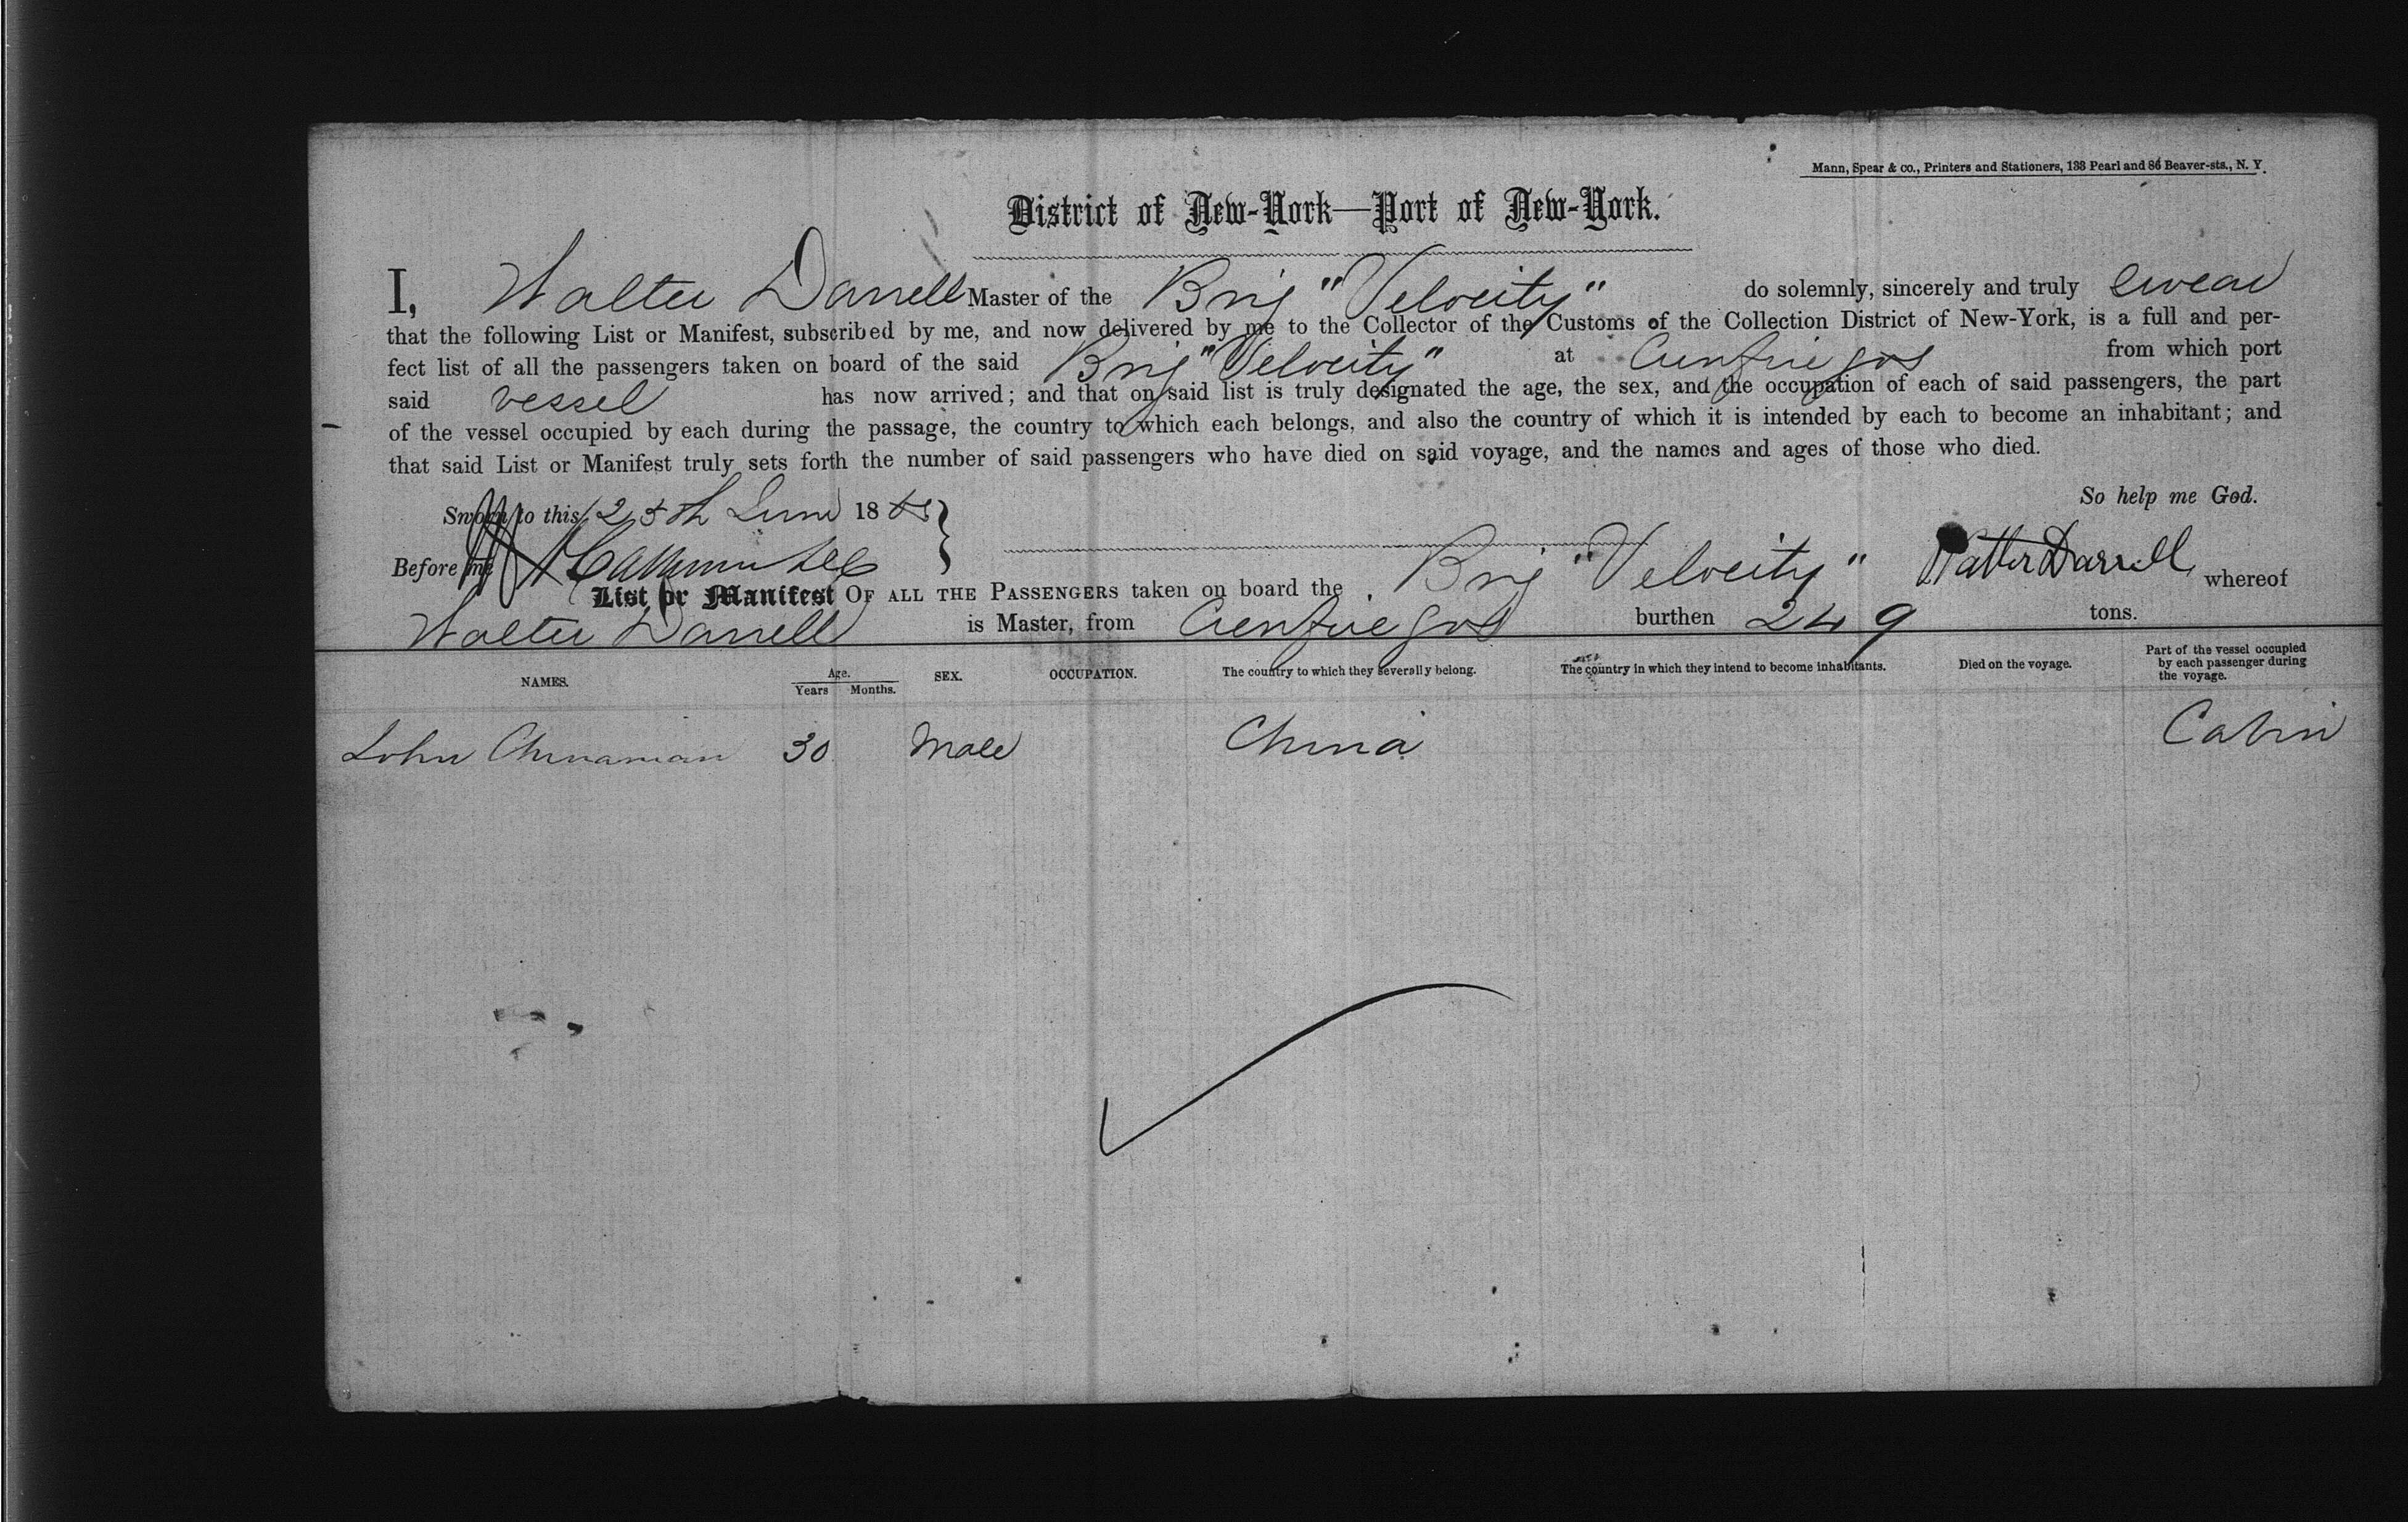 Mann, Spear & co., Printers and Stationers, 133 Pearl and 86 Beaver-sts., N. Y.
District of New-York—Port of New-York.
I, Walter Darrell Master of the Brig "Velocity" do solemnly, sincerely and truly swear
that the following List or Manifest, subscribed by me, and now delivered by me to the Collector of the Customs of the Collection District of New-York, is a full and per-
fect list of all the passengers taken on board of the said Brig "Velocity" at Cienfuegos from which port
said vessel has now arrived; and that on said list is truly designated the age, the sex, and the occupation of each of said passengers, the part
of the vessel occupied by each during the passage, the country to which each belongs, and also the country of which it is intended by each to become an inhabitant; and
that said List or Manifest truly sets forth the number of said passengers who have died on said voyage, and the names and ages of those who died.
So help me God.
Sworn to this 25th June 18
Before me
Walter Darrell
List or Manifest OF ALL THE PASSENGERS taken on board the Brig "Velocity" whereof
Walter Darrell is Master, from Cienfuegos burthen 249 tons.
NAMES. Age. Years Months. SEX. OCCUPATION. The country to which they severally belong. The country in which they intend to become inhabitants. Died on the voyage. Part of the vessel occupied by each passenger during the voyage.
John Chinaman 30 Male China Cabin